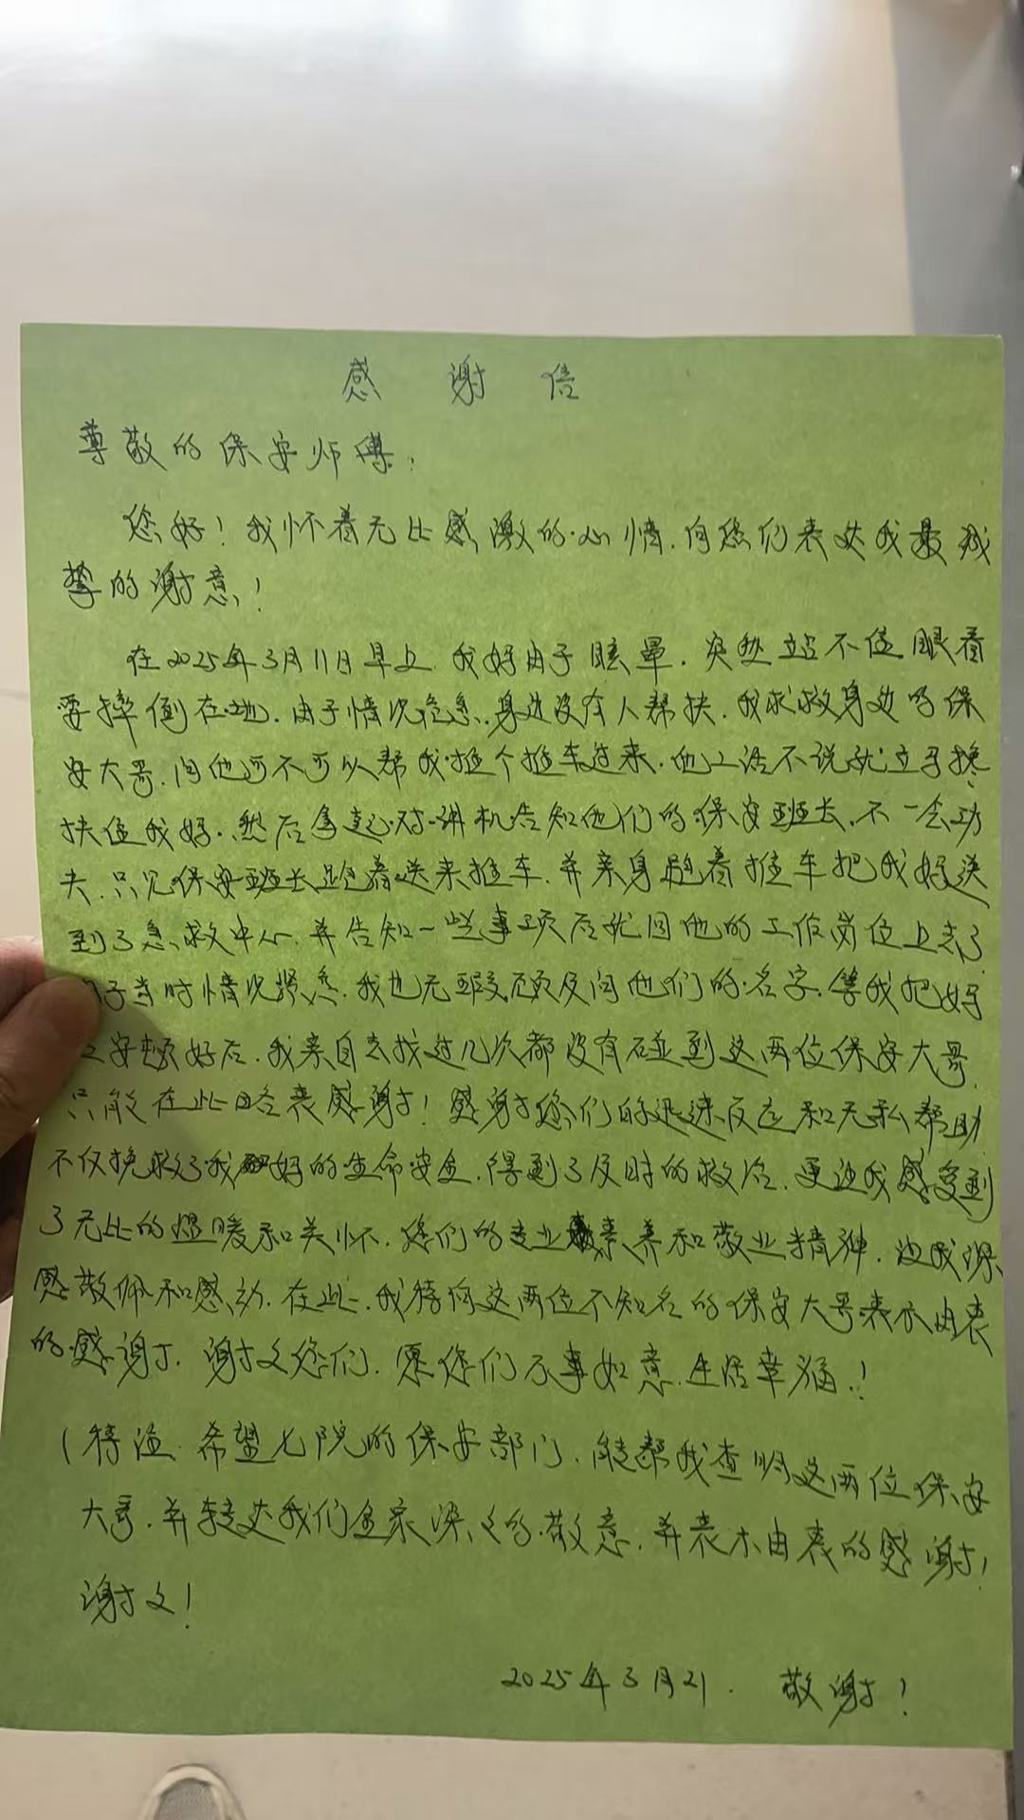 感谢信
尊敬的保安师傅:
您好!我怀着无比感激的心情,向您们表达我最诚
挚的谢意!
在2025年3月11日早上,我妈由于眩晕,突然站不住眼看
要摔倒在地,由于情况危急,身边没有人帮扶,我求救身边的保
安大哥,问他可不可以帮我推个推车过来,他二话不说就立马搀
扶住我妈,然后拿起对讲机告知他们的保安班长,不一会功
夫,只见保安班长跑着送来推车,并亲身跑着推车把我妈送
到了急救中心,并告知一些事项后就回他的工作岗位上去了
由于当时情况紧急,我也无暇顾及问他们的名字,等我把妈
安顿好后,我亲自去找过几次都没有碰到这两位保安大哥,
只能在此略表感谢!感谢您们的迅速反应和无私帮助
不仅挽救了我妈的生命安全,得到了及时的救治,更让我感受到
了无比的温暖和关怀,您们的专业素养和敬业精神,让我深
感敬佩和感动,在此,我特向这两位不知名的保安大哥表示由衷
的感谢,谢谢您们,愿您们万事如意,生活幸福!
(特注:希望七院的保安部门,能帮我查明这两位保安
大哥,并转达我们全家深深的敬意,并表示由衷的感谢!
谢谢!
2025年3月21. 敬谢!